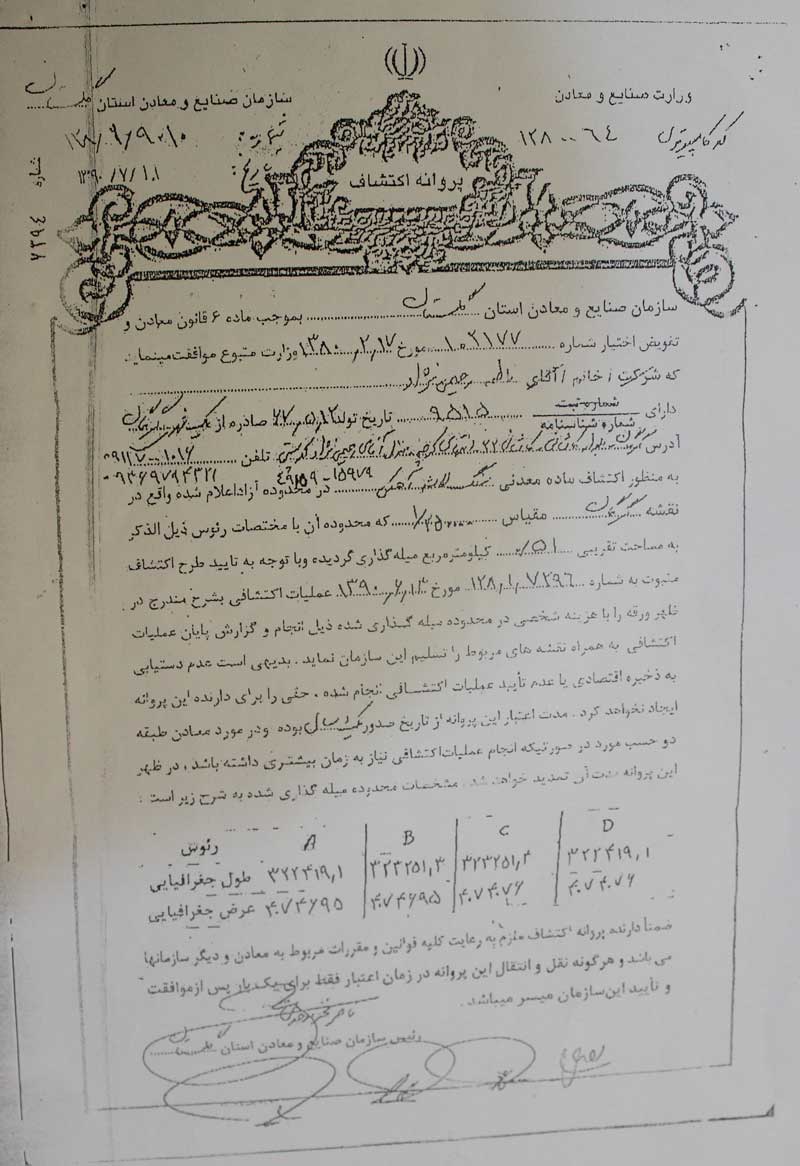 وزارت صنایع و معادن
سازمان صنایع و معادن استان گلستان
کد کامپیوتری ۱۲۸۰۰۶۴
شماره
پروانه اکتشاف
۱۳۹۰/۷/۱۸
۷۲۹۴
سازمان صنایع و معادن استان گلستان بموجب ماده ۶ قانون معادن و
تفویض اختیار شماره ۱۰۲۱۷۷ مورخ ۱۳۸۰/۲/۱۷ وزارت متبوع موافقت مینماید
که شرکت / خانم / آقای رحیمی نژاد
دارای شماره ثبت / شماره شناسنامه ۹۵۱۵ تاریخ تولد ۶۷/۵/۱۲ صادره از
آدرس تلفن ۰۹۱۱۷۰۰۱۰۱۶
۰۹۳۶۹۷۹۴۳۲۱
به منظور اکتشاف ماده معدنی سنگ لاشه آهکی در محدوده آزاد اعلام شده واقع در
نقشه گرگان مقیاس ۱/۲۵۰۰۰۰ که محدوده آن با مختصات رئوس ذیل الذکر
به مساحت تقریبی ۰/۵۱ کیلومترمربع میله گذاری گردیده وبا توجه به تایید طرح اکتشاف
مثبوت به شماره ۱۲۸/۱/۷۲۹۶ مورخ ۱۳۹۰/۶/۱۳ عملیات اکتشافی بشرح مندرج در
ظهر ورقه را با هزینه شخصی در محدوده میله گذاری شده ذیل انجام و گزارش پایان عملیات
اکتشافی به همراه نقشه های مربوط را تسلیم این سازمان نماید . بدیهی است عدم دستیابی
به ذخیره اقتصادی یا عدم تأیید عملیات اکتشافی انجام شده ، حقی را برای دارنده این پروانه
ایجاد نخواهد کرد . مدت اعتبار این پروانه از تاریخ صدور یک سال بوده و در مورد معادن طبقه
دو حسب مورد در صورتیکه انجام عملیات اکتشافی نیاز به زمان بیشتری داشته باشد ، در ظهر
این پروانه مدت آن تمدید خواهد شد . مشخصات محدوده میله گذاری شده به شرح زیر است :
رئوس A B C D
طول جغرافیایی ۳۲۲۴۱۹,۱ ۳۲۳۲۵۱,۳ ۳۲۳۲۵۱,۳ ۳۲۲۴۱۹,۱
عرض جغرافیایی ۴۰۷۴۶۹۵ ۴۰۷۴۶۹۵ ۴۰۷۴۰۷۶ ۴۰۷۴۰۷۶
ضمناً دارنده پروانه اکتشاف ملزم به رعایت کلیه قوانین و مقررات مربوط به معادن و دیگر سازمانها
می باشد و هرگونه نقل و انتقال این پروانه در زمان اعتبار فقط برای یک بار پس از موافقت
و تأیید این سازمان میسر میباشد .
رئیس سازمان صنایع و معادن استان گلستان